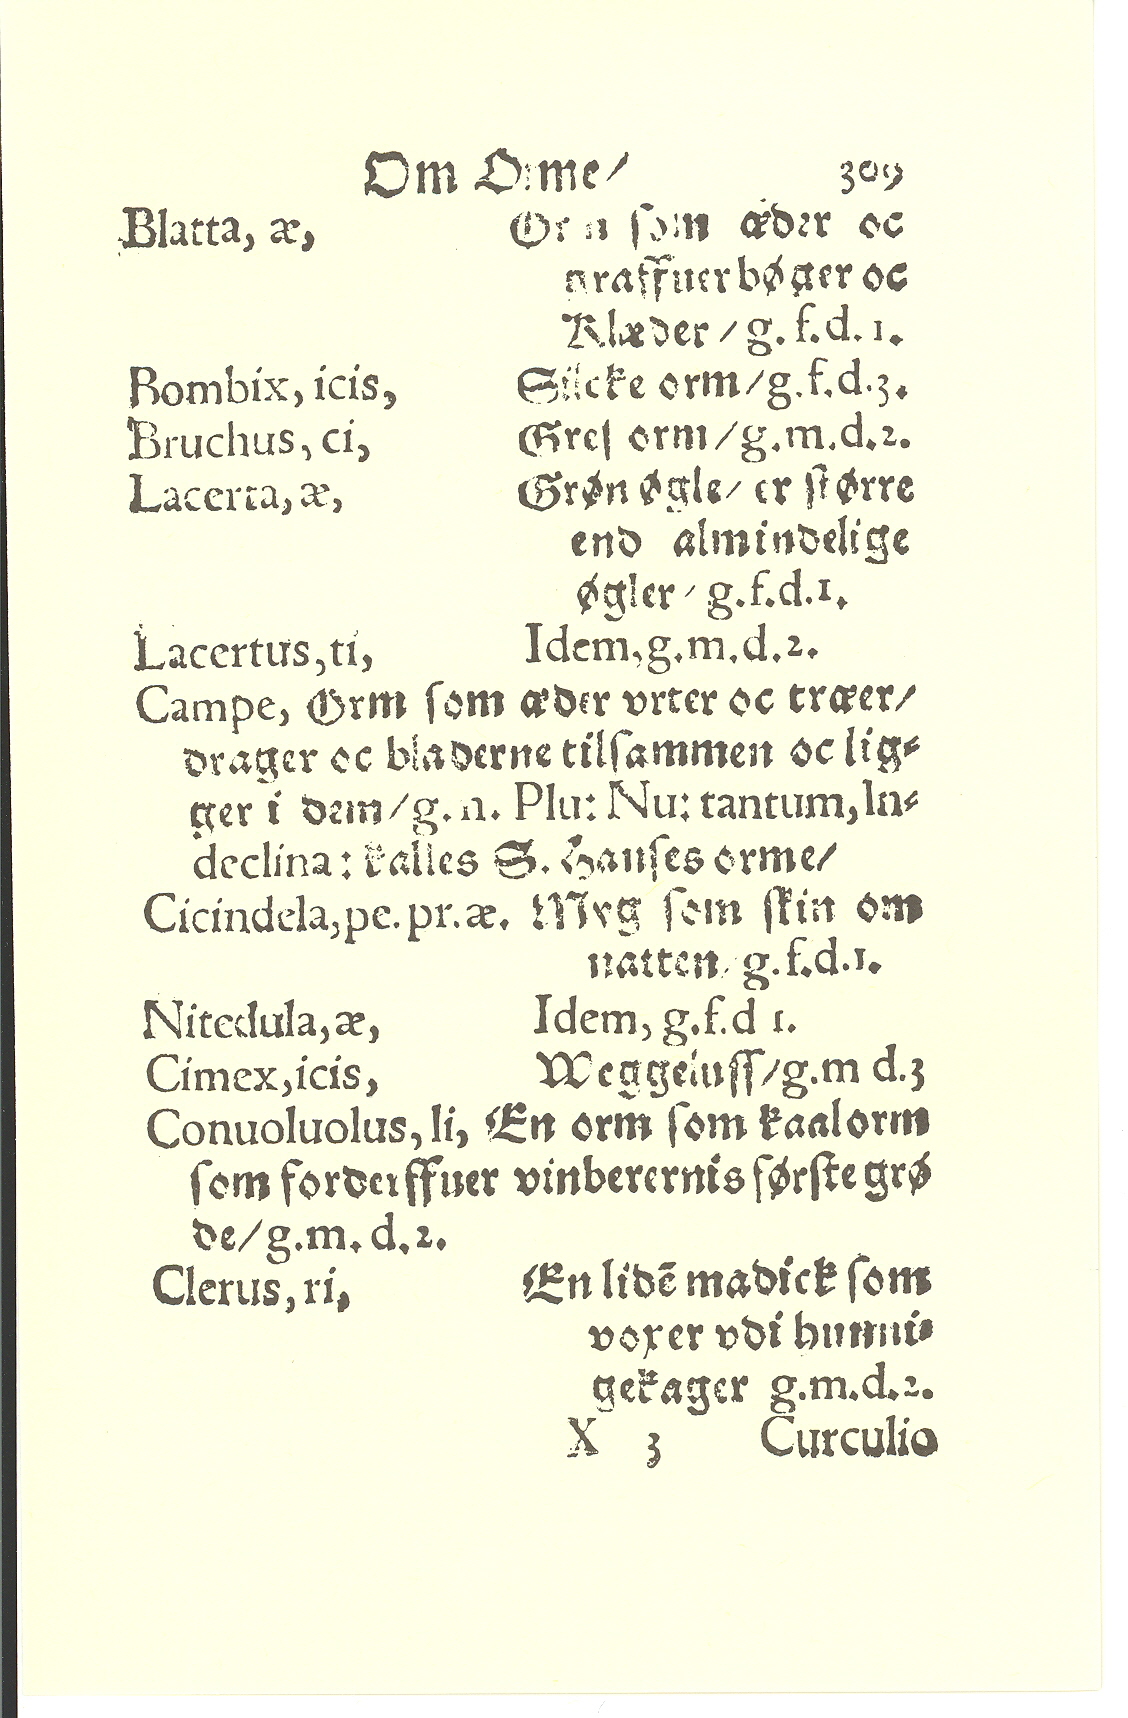 Om Orme/ 309
Blatta, æ, Orm som æder oc
graffuer bøger oc
Klæder / g. f. d. 1.
Bombix, icis, Silcke orm / g. f. d. 3.
Bruchus, ci, Gres orm / g. m. d. 2.
Lacerta, æ, Grøn øgle / er større
end almindelige
øgler / g. f. d. 1.
Lacertus, ti, Idem, g. m. d. 2.
Campe, Orm som æder vrter oc træer/
drager oc bladerne tilsammen oc lig⸗
ger i dem / g. n. Plu: Nu: tantum, In⸗
declina: kalles S. Hanses orme/
Cicindela, pe. pr. æ. Myg som skin om
natten / g. f. d. 1.
Nitedula, æ, Idem, g. f. d 1.
Cimex, icis, Weggeluss / g. m d. 3
Conuoluolus, li, En orm som kaalorm
som forderffuer vinberernis første grø
de / g. m. d. 2.
Clerus, ri, En lidē madick som
voxer vdi hunni⸗
gekager g. m. d. 2.
X 3 Curculio